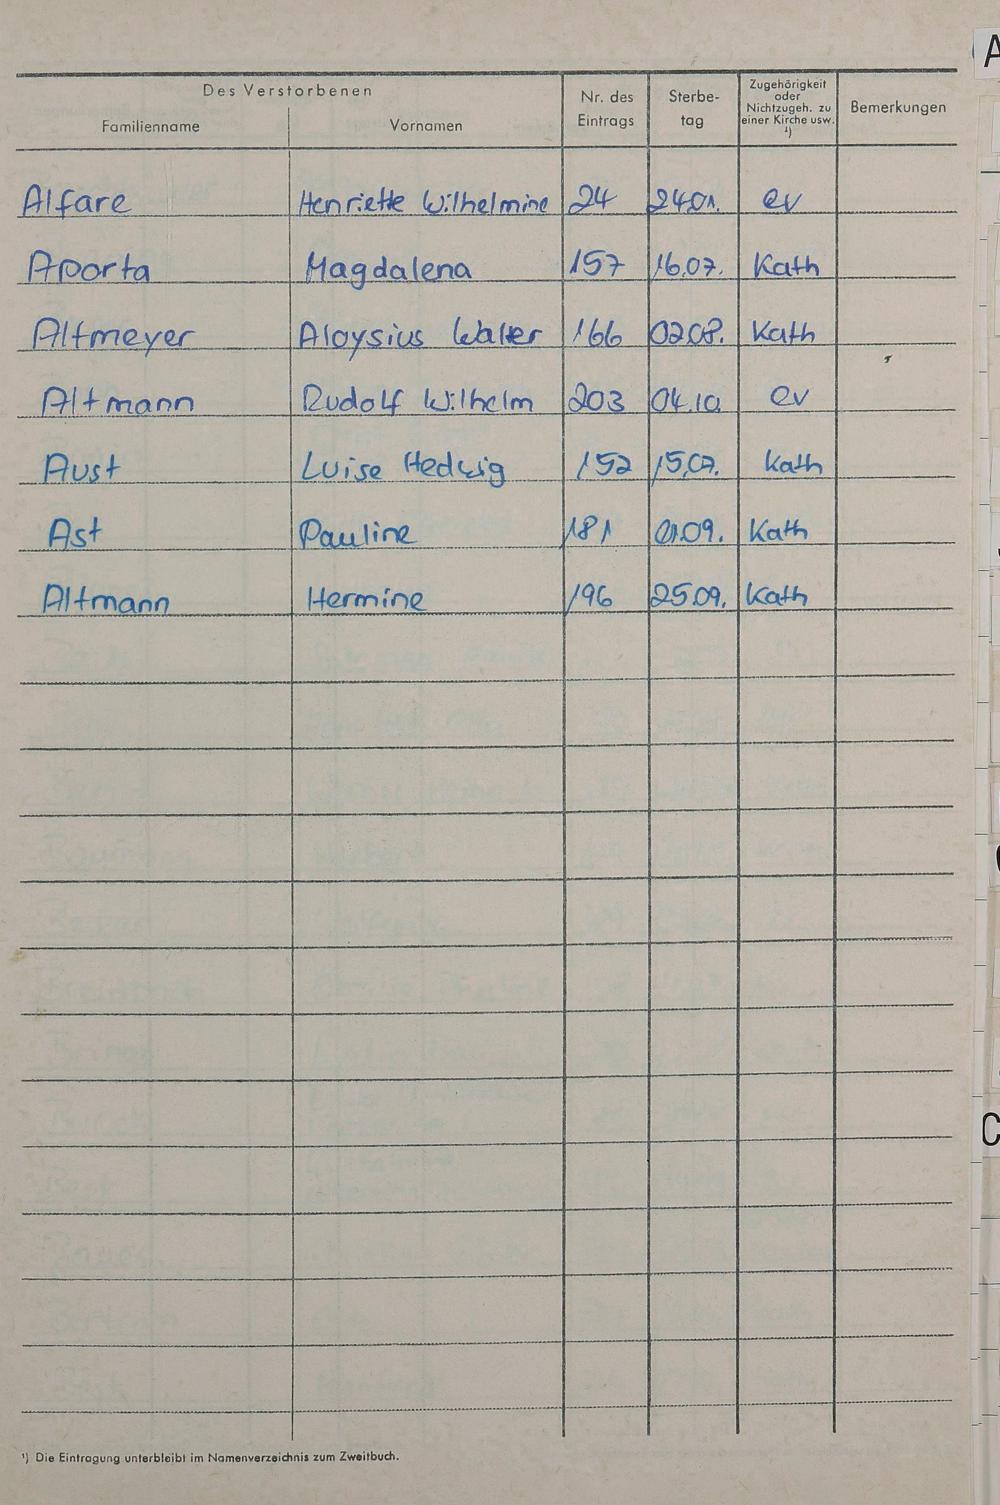 Des Verstorbenen
Familienname
Vornamen
Nr. des
Eintrags
Sterbe-
tag
Zugehörigkeit
oder
Nichtzugeh. zu
einer Kirche usw.
¹)
Bemerkungen
Alfare Henriette Wilhelmine 24 24.01. ev
Aporta Magdalena 157 16.07. Kath
Altmeyer Aloysius Walter 166 02.08. Kath
Altmann Rudolf Wilhelm 203 04.10. ev
Aust Luise Hedwig 152 15.07. Kath
Ast Pauline 181 01.09. Kath
Altmann Hermine 196 25.09. Kath
¹) Die Eintragung unterbleibt im Namenverzeichnis zum Zweitbuch.
A
C